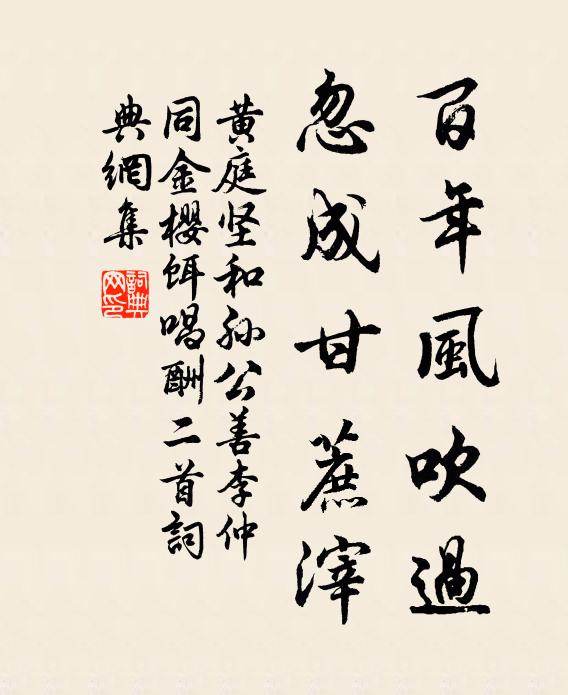 百年風吹過
忽成甘蔗滓
黄庭坚和孙公善李仲
同金櫻餌唱酬二首詞
典網集
詞典
网印